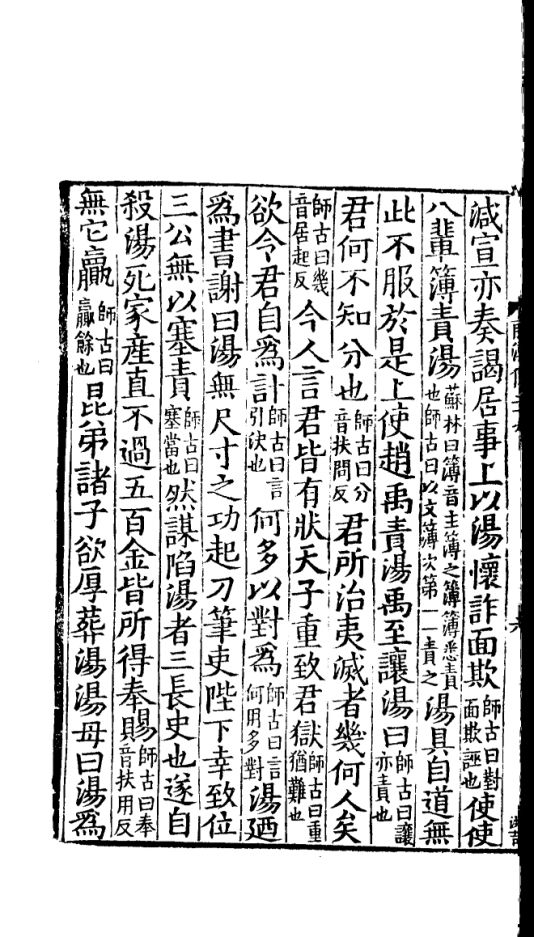 減宣亦奏謁居事上以湯懷詐面欺師古曰對面欺誣也使使
八輩簿責湯蘇林曰簿音主簿之簿簿悉責也師古曰以文簿次第一一責之湯具自道無
此不服於是上使趙禹責湯禹至讓湯曰師古曰讓亦責也
君何不知分也師古曰分音扶問反君所治夷滅者幾何人矣
師古曰幾音居起反今人言君皆有狀天子重致君獄師古曰重猶難也
欲令君自爲計師古曰言引決也何多以對爲師古曰言何用多對湯廼
爲書謝曰湯無尺寸之功起刀筆吏陛下幸致位
三公無以塞責師古曰塞當也然謀陷湯者三長史也遂自
殺湯死家産直不過五百金皆所得奉賜師古曰奉音扶用反
無它贏師古曰贏餘也昆弟諸子欲厚葬湯湯母曰湯爲